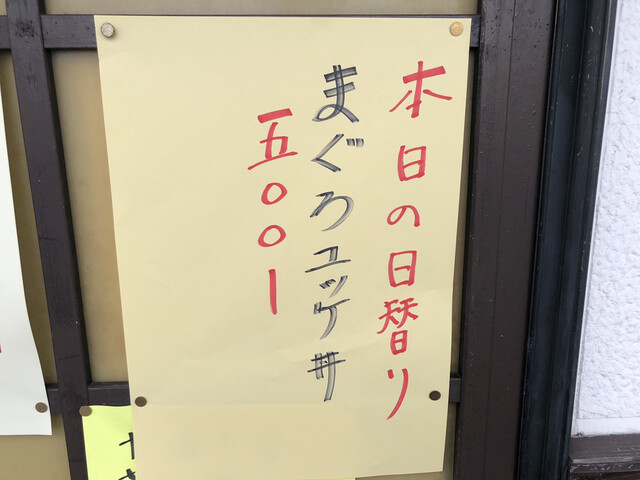 本日の日替り
まぐろユッケ丼
五〇〇ー